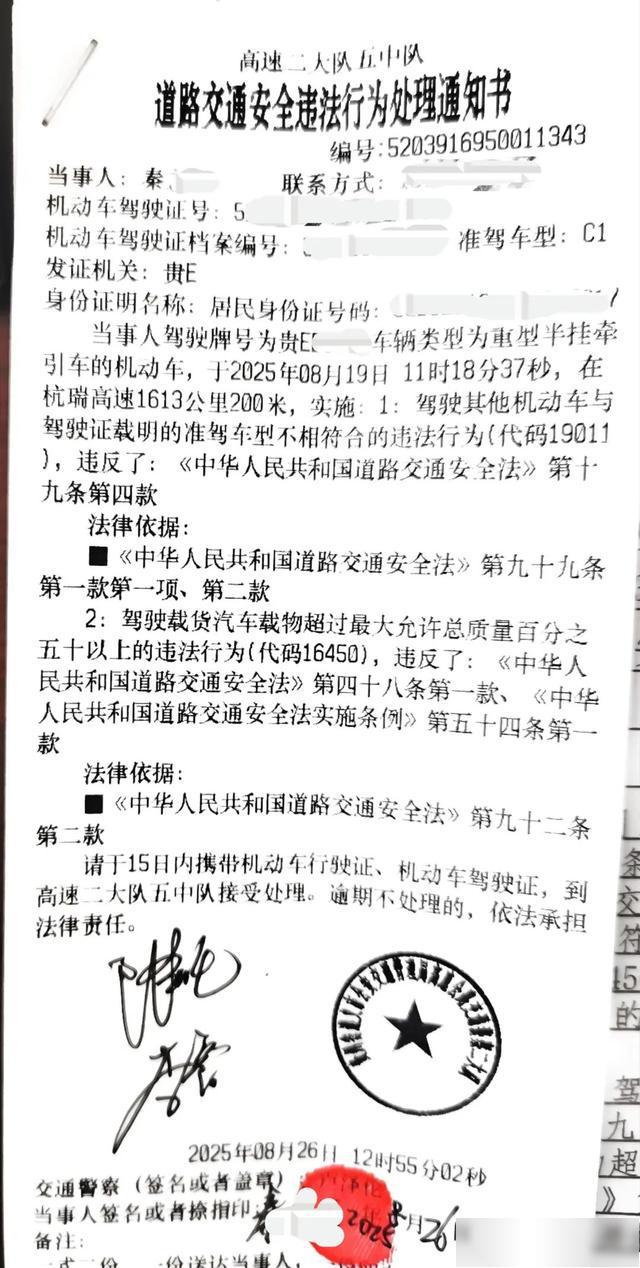 高速二大队五中队
道路交通安全违法行为处理通知书
编号:5203916950011343
当事人: 秦 联系方式:
机动车驾驶证号: 5
机动车驾驶证档案编号: 准驾车型: C1
发证机关: 贵E
身份证明名称: 居民身份证号码:
当事人驾驶牌号为贵E 车辆类型为重型半挂牵
引车的机动车, 于2025年08月19日 11时18分37秒, 在
杭瑞高速1613公里200米, 实施: 1: 驾驶其他机动车与
驾驶证载明的准驾车型不相符合的违法行为(代码19011
), 违反了: 《中华人民共和国道路交通安全法》第十
九条第四款
法律依据:
■《中华人民共和国道路交通安全法》第九十九条
第一款第一项、第二款
2: 驾驶载货汽车载物超过最大允许总质量百分之
五十以上的违法行为(代码16450), 违反了: 《中华人
民共和国道路交通安全法》第四十八条第一款、《中华
人民共和国道路交通安全法实施条例》第五十四条第一
款
法律依据:
■《中华人民共和国道路交通安全法》第九十二条
第二款
请于15日内携带机动车行驶证、机动车驾驶证, 到
高速二大队五中队接受处理。逾期不处理的, 依法承担
法律责任。
2025年08月26日 12时55分02秒
交通警察 (签名或者盖章):
当事人签名或者捺指印: 秦 2025 8 26
备注:
一式二份, 一份送达当事人,
条
交
符
45
的
驾
九
超
》